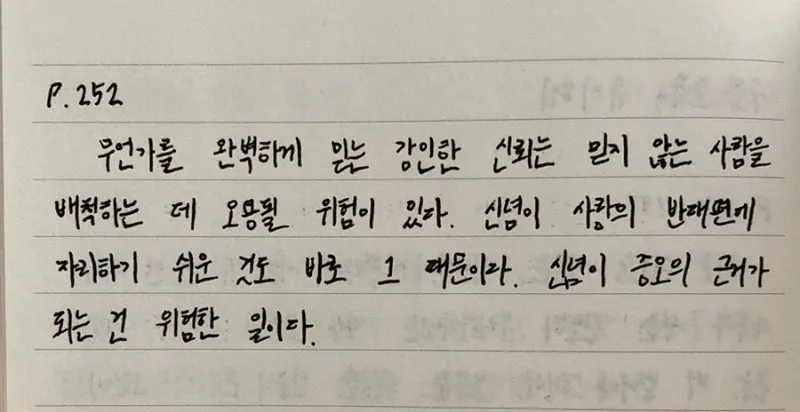 P.252
무언가를 완벽하게 믿는 강인한 신뢰는 믿지 않는 사람을
배척하는 데 오용될 위험이 있다. 신념이 사랑의 반대편에
자리하기 쉬운 것도 바로 그 때문이다. 신념이 증오의 근거가
되는 건 위험한 일이다.